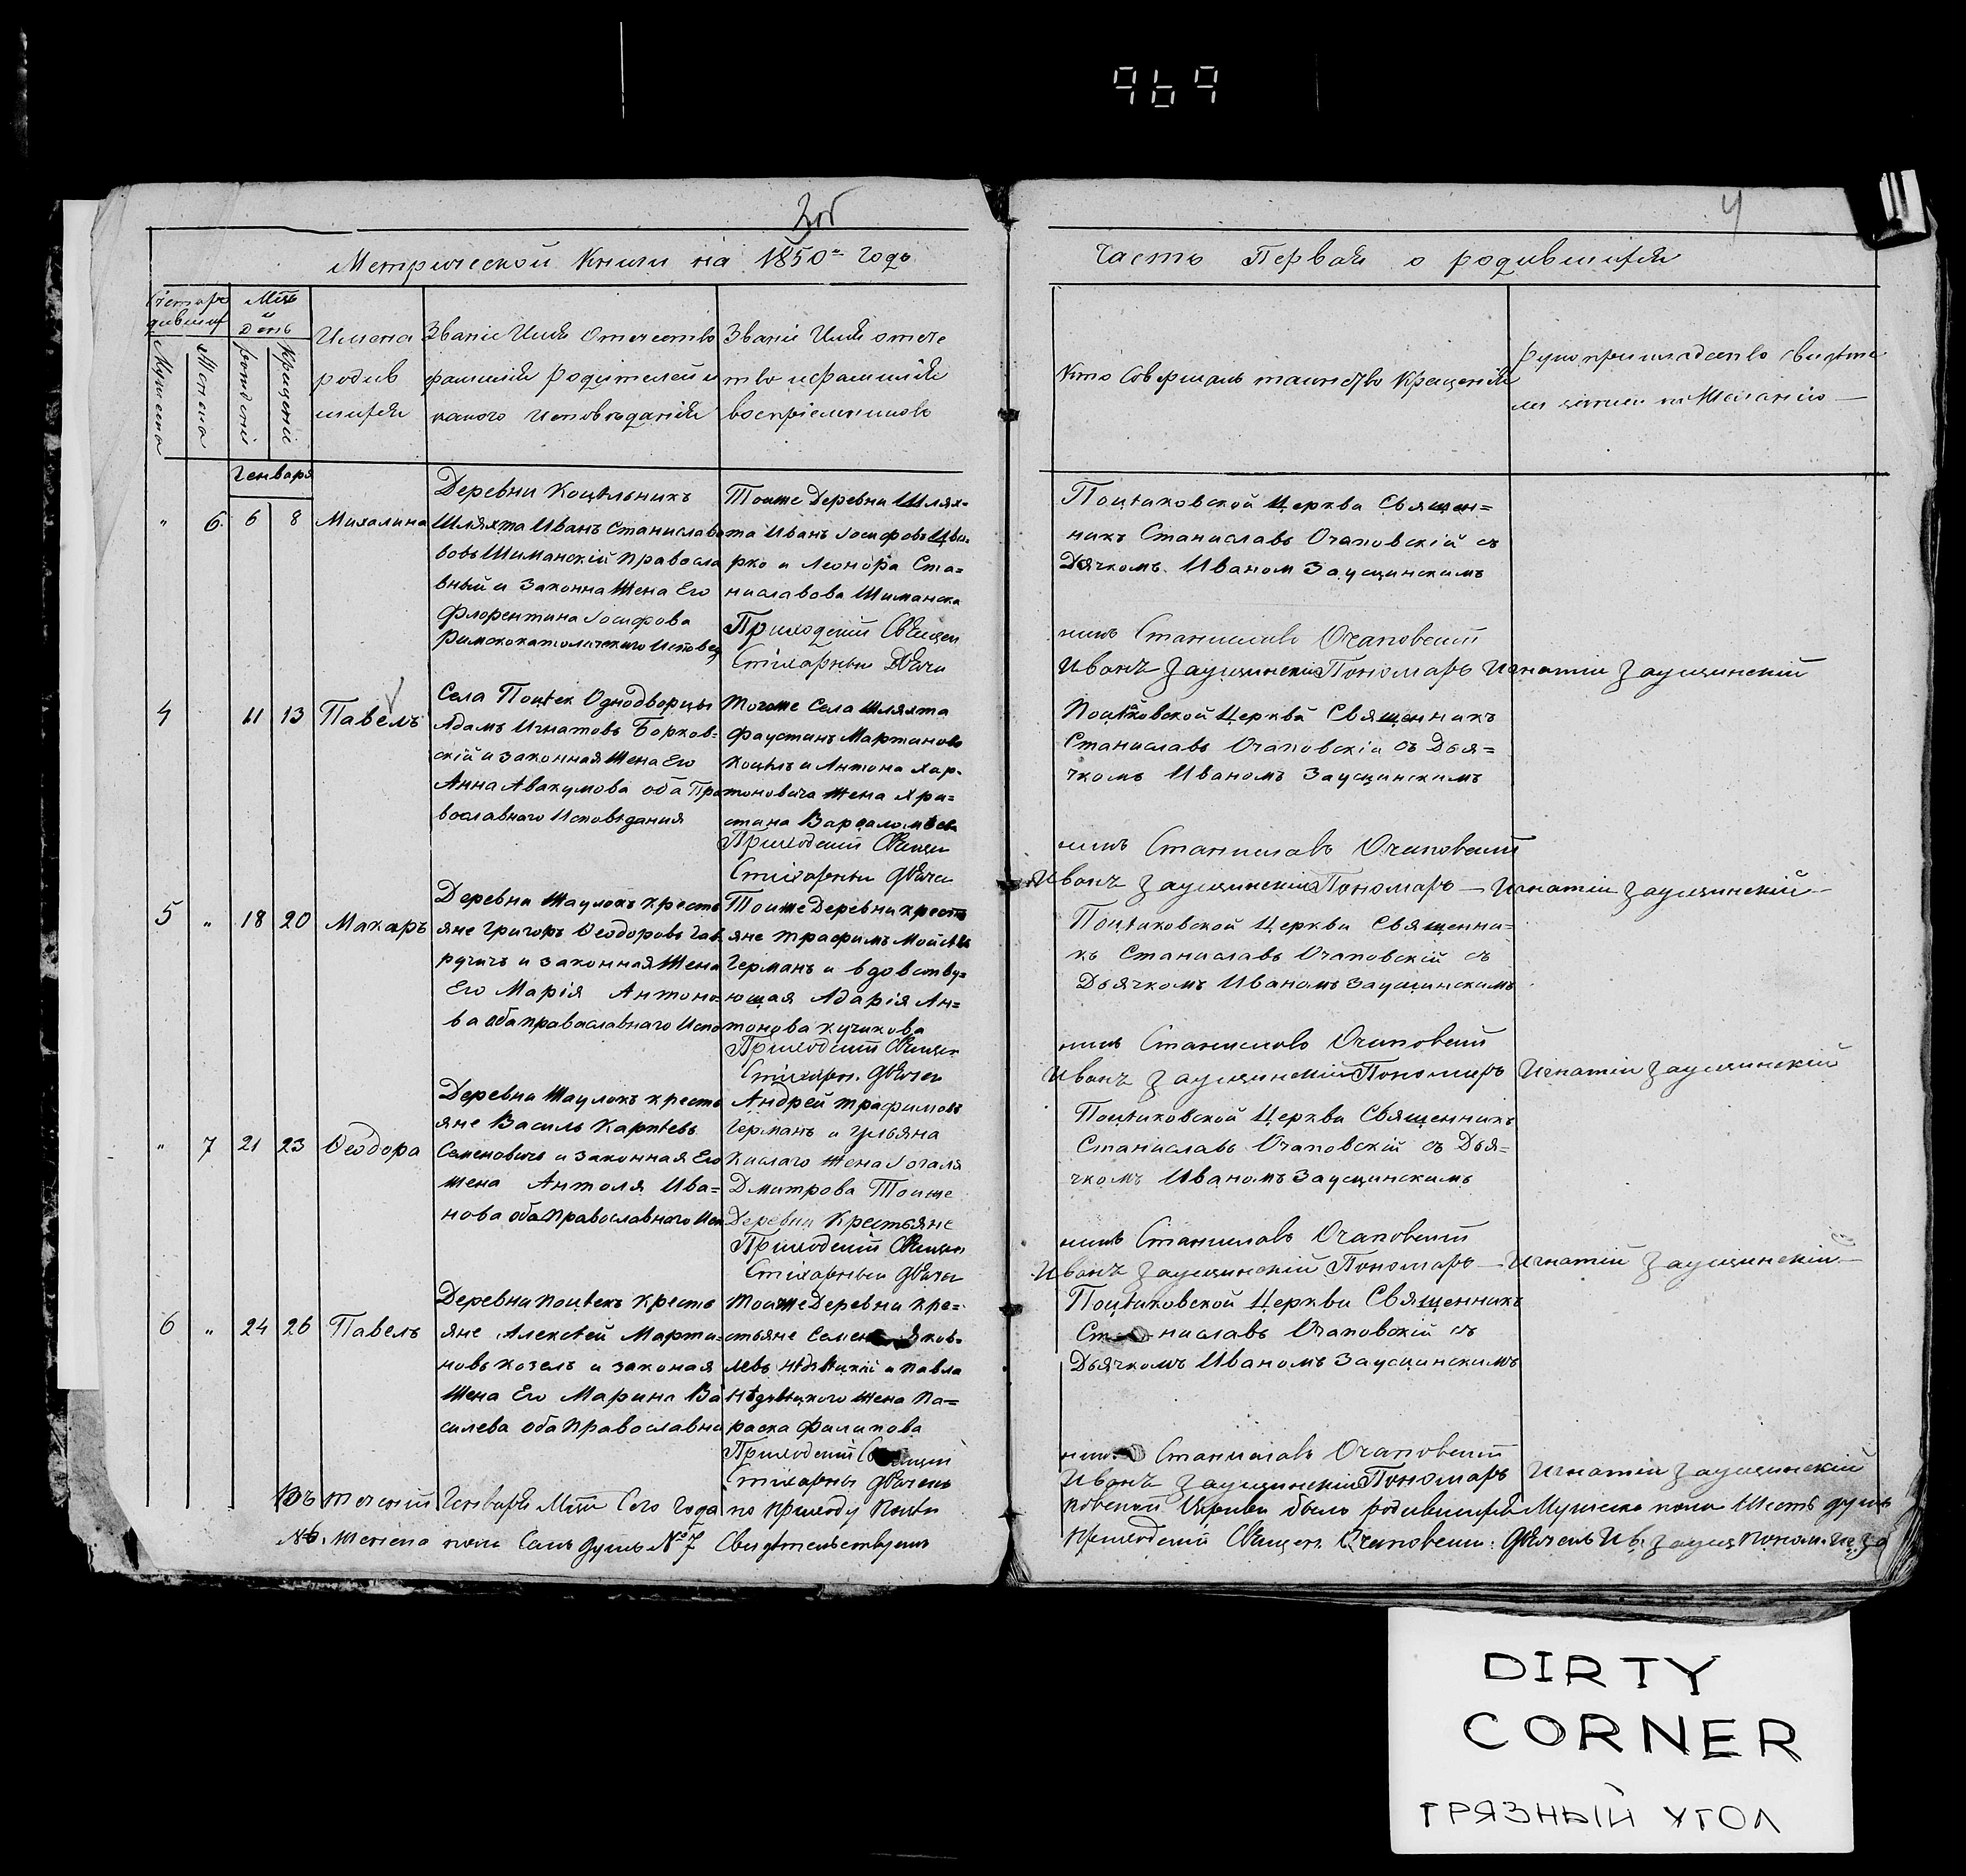 969
3об
4
Метрической Книги на 1850й годъ
Часть Первая о родившихся
Счетъ родившихся
Мць и день
Мужеска
Женска
рожденія
Крещенія
Имена
родив
шихся
Званіе Имя Отечество
фамилія родителей и
какого исповѣданія
Званіе Имя отече
тво и фамилія
воспріемниковъ
Кто совершалъ таинство Крещенія
рукоприкладство свидѣте
Генваря
" 6 6 8 Михалина
Деревни Коцѣльникъ
Шляхта Иванъ Станисла
вовъ Шиманскій Правосла
вный и Законна Жена Его
Флорентина Іосифова
Римскокатолическаго Исповед
Тойже Деревни Шлях-
та Иванъ Іосифовъ Цви-
рко и Леонора Ста=
ниславова Шиманска
Приходскій Священ
Стихарный Дьячи
Поцѣйковской Церкви Священ=
никъ Станиславъ Очаповскій съ
Дьячкомъ Иваном Заусцинскимъ
никъ Станиславъ Очаповскій
Иванъ Заусцинскій Пономарь Игнатій Заусцинскій
4 11 13 Павелъ
Села Поцѣек Однодворцы
Адамъ Игнатовъ Борков=
скій и законная Жена Его
Анна Авакумова оба Пра
вославнаго Исповѣдания
Тогоже Села шляхта
Фаустинъ Мартиновъ
Коцѣлъ и Антона Хар-
тоновича Жена Хри=
стина Варфаломѣева
Приходскій Священ
Стихарный Дьячи
Поцѣйковской Церкви Священникъ
Станиславъ Очаповскій съ Дья=
чкомъ Иваномъ Заусцинскимъ
никъ Станиславъ Очаповскій
Иванъ Заусцинскій Пономарь — Игнатій Заусцинскій —
5 " 18 20 Макаръ
Деревни Жаулокъ Кресть
яне Григоръ Ѳеодоровъ Гав
ручичъ и законная Жена
Его Марія Антоно=
ва оба православнаго Испо
Тойже Деревни кресть
яне Трафимъ Мойсѣев
Германъ и вдовству=
ющая Адарія Ан=
тонова Кучикова
Приходскій Священ
Стихарн. Дьячи
Поцѣйковской Церкви Священни=
къ Станиславъ Очаповскій съ
Дьячкомъ Иваномъ Заусцинскимъ
никъ Станиславъ Очаповскій
Иванъ Заусцинскій Пономарь Игнатій Заусцинскій
" 7 21 23 Ѳеодора
Деревни Жаулокъ кресть
яне Василь Карпѣевъ
Семеновичъ и законная Его
жена Антоля Ива=
нова оба Православнаго Исп
Андрей Трафимовъ
Германъ и Ульяна
Кислаго Жена Гогаля
Дмитрова Тойже
Деревни Крестьяне
Приходскій Священ
Стихарный Дьячи
Поцѣйковской Церкви Священникъ
Станиславъ Очаповскій съ Дья=
чкомъ Иваномъ Заусцинскимъ
никъ Станиславъ Очаповскій
Иванъ Заусцинскій Пономарь — Игнатій Заусцинскій —
6 " 24 26 Павелъ
Деревни Поцѣекъ Кресть
яне Алексѣй Марти=
новъ Козелъ и законая
Жена Его Марина Ва
силева оба Православни
Тойже Деревни кре=
стьяне Семен Яков-
левъ Нѣдзвѣцкій и Павла
Нѣдзвѣцкого Жена Па=
раска Филипова
Приходскій Священ
Стихарны Дьячекъ
Поцѣйковской Церкви Священникъ
Станиславъ Очаповскій съ
Дьячкомъ Иваномъ Заусцинскимъ
никъ Станиславъ Очаповскій
Иванъ Заусцинскій Пономарь Игнатій Заусцинскій
Въ теченіи Генваря Мца Сего года по Приходу Поцѣй
ковской Церкви было родившихся Мужеска пола Шесть душъ
№6. Женска пола Семь душъ №7 Свидѣтельствуемъ
Приходскій Священ. Очаповскій. Дьячекъ Ив. Заусц Поном. Иг. За
DIRTY
CORNER
ГРЯЗНЫЙ УГОЛ